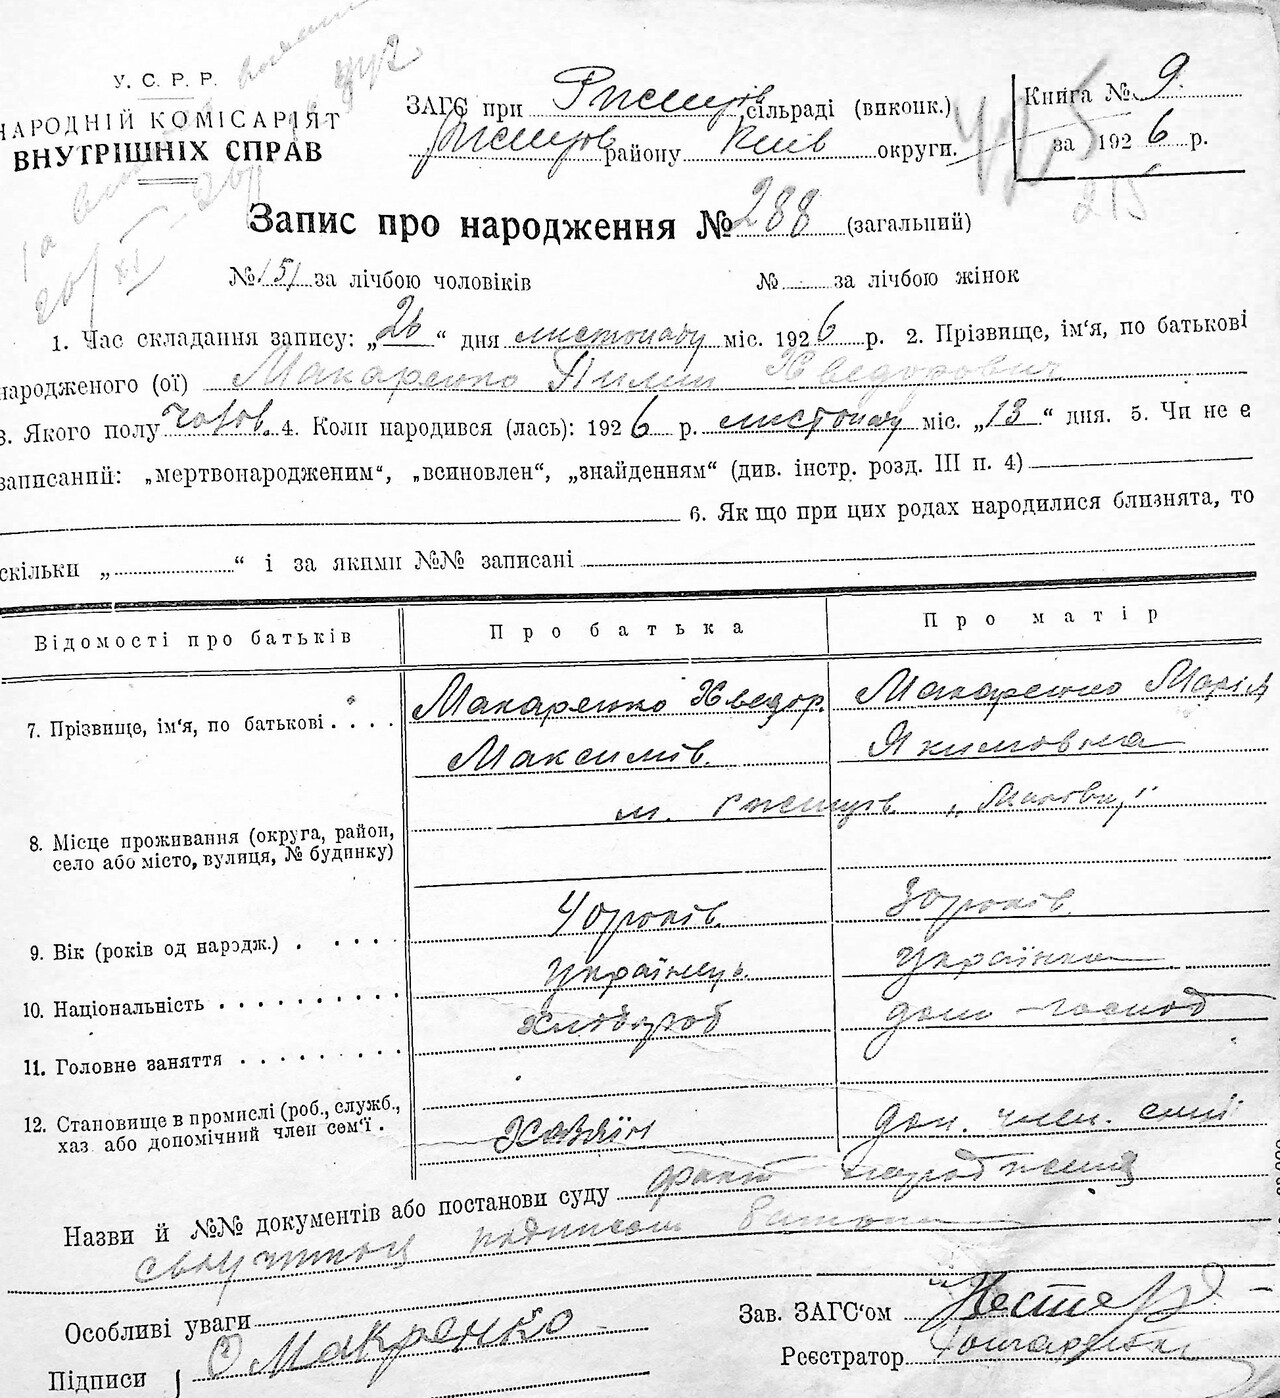 У. С. Р. Р.
НАРОДНІЙ КОМІСАРІЯТ
ВНУТРІШНІХ СПРАВ
ЗАГС при Ржищів сільраді (виконк.)
Ржищів району Київ округи.
Книга № 9.
за 1926 р.
215
Запис про народження № 288 (загальний)
№ 151 за лічбою чоловіків № за лічбою жінок
1. Час складання запису: „26“ дня листопаду міс. 1926 р. 2. Прізвище, ім'я, по батькові
народженого (ої) Макаренко Пилип Хведорович
3. Якого полу чолов. 4. Коли народився (лась): 1926 р. листопаду міс. „13“ дня. 5. Чи не є
записаний: „мертвонародженим“, „всиновлен“, „знайденням“ (див. інстр. розд. III п. 4)
6. Як що при цих родах народилися близнята, то
скільки „ “ і за якими №№ записані
Відомості про батьків Про батька Про матір
7. Прізвище, ім'я, по батькові Макаренко Хведор Макаренко Марія
Максимів. Якимовна
м. Ржищів
8. Місце проживання (округа, район,
село або місто, вулиця, № будинку)
9. Вік (років од народж.) 40 років. 30 років.
10. Національність Українець. Українка
11. Головне заняття хлібороб дом-господ
12. Становище в промислі (роб., служб.,
хаз або допомічний член сем'ї. Хазяїн доп. член. сімї
Назви й №№ документів або постанови суду факт народження
підписом
Особливі уваги
Зав. ЗАГС'ом
Підписи Макренко
Реєстратор